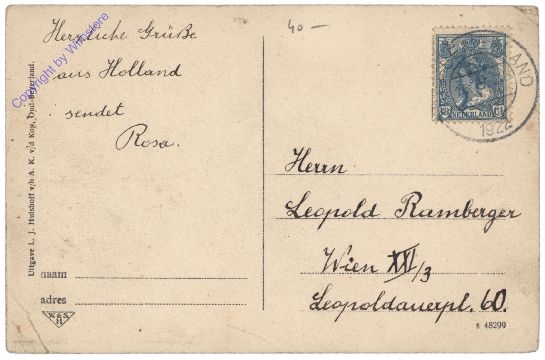 Herzliche Grüße
aus Holland
sendet
Rosa.
40 —
Copyright by
Uitgave L. J. Hulshoff v/h A. K. v/d Kop, Oud-Beyerland.
naam
adres
NEDERLAND
LAND
1922
Herrn
Leopold Ramberger
Wien XXI/3
Leopoldauerpl. 60.
s 48299